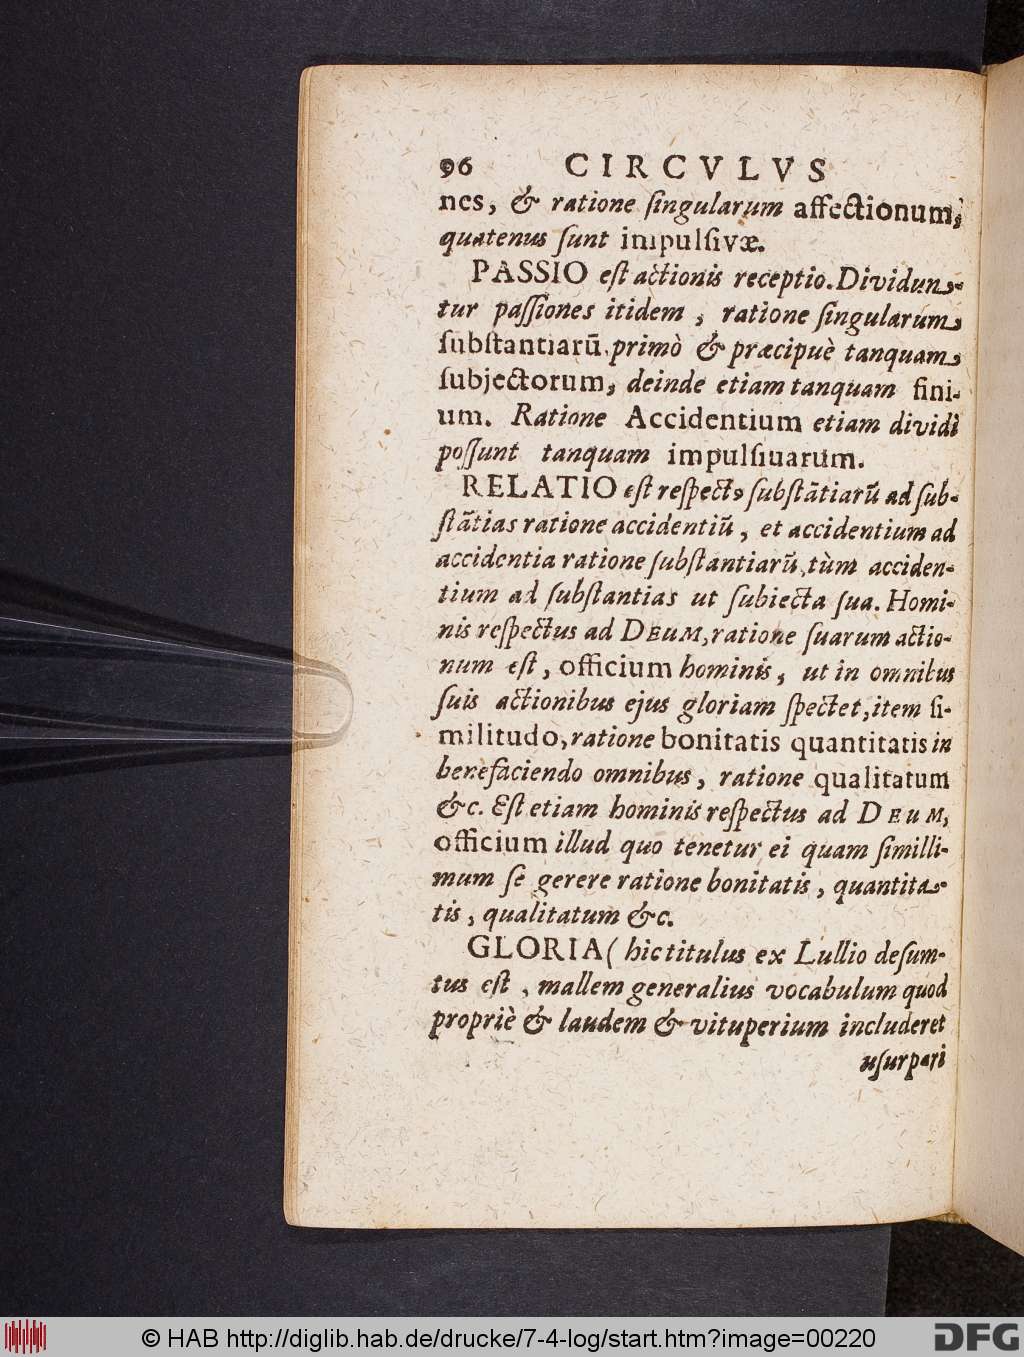 96 CIRCVLVS
nes, & ratione ſingularum affectionum,
quatenus ſunt impulſivæ.
PASSIO eſt actionis receptio. Dividun-
tur paſſiones itidem, ratione ſingularum
ſubſtantiarũ, primò & præcipuè tanquam
ſubjectorum, deinde etiam tanquam fini-
um. Ratione Accidentium etiam dividi
poſſunt tanquam impulſiuarum.
RELATIO eſt reſpectꝰ ſubſtãtiarũ ad ſub-
ſtãtias ratione accidentiũ, et accidentium ad
accidentia ratione ſubſtantiarũ, tùm acciden-
tium ad ſubſtantias ut ſubiecta ſua. Homi-
nis reſpectus ad DEUM, ratione ſuarum actio-
num eſt, officium hominis, ut in omnibus
ſuis actionibus ejus gloriam ſpectet, item ſi-
militudo, ratione bonitatis quantitatis in
benefaciendo omnibus, ratione qualitatum
&c. Eſt etiam hominis reſpectus ad DEUM,
officium illud quo tenetur ei quam ſimilli-
mum ſe gerere ratione bonitatis, quantita-
tis, qualitatum &c.
GLORIA (hic titulus ex Lullio deſum-
tus eſt, mallem generalius vocabulum quod
propriè & laudem & vituperium includeret
uſurpari
© HAB http://diglib.hab.de/drucke/7-4-log/start.htm?image=00220
DFG